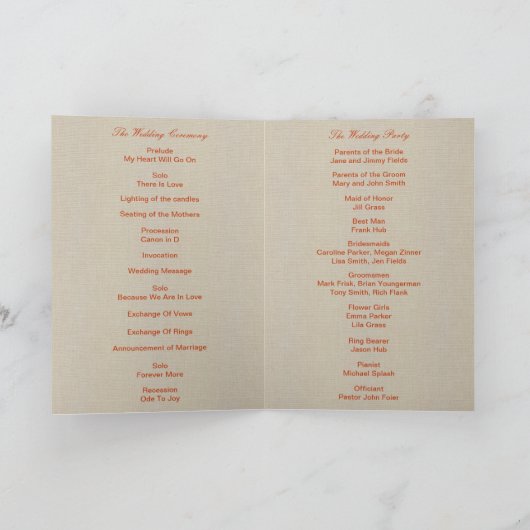 The Wedding Ceremony
Prelude
My Heart Will Go On
Solo
There Is Love
Lighting of the candles
Seating of the Mothers
Procession
Canon in D
Invocation
Wedding Message
Solo
Because We Are In Love
Exchange Of Vows
Exchange Of Rings
Announcement of Marriage
Solo
Forever More
Recession
Ode To Joy
The Wedding Party
Parents of the Bride
Jane and Jimmy Fields
Parents of the Groom
Mary and John Smith
Maid of Honor
Jill Grass
Best Man
Frank Hub
Bridesmaids
Caroline Parker, Megan Zinner
Lisa Smith, Jen Fields
Groomsmen
Mark Frisk, Brian Youngerman
Tony Smith, Rich Flank
Flower Girls
Emma Parker
Lila Grass
Ring Bearer
Jason Hub
Pianist
Michael Splash
Officiant
Pastor John Foier